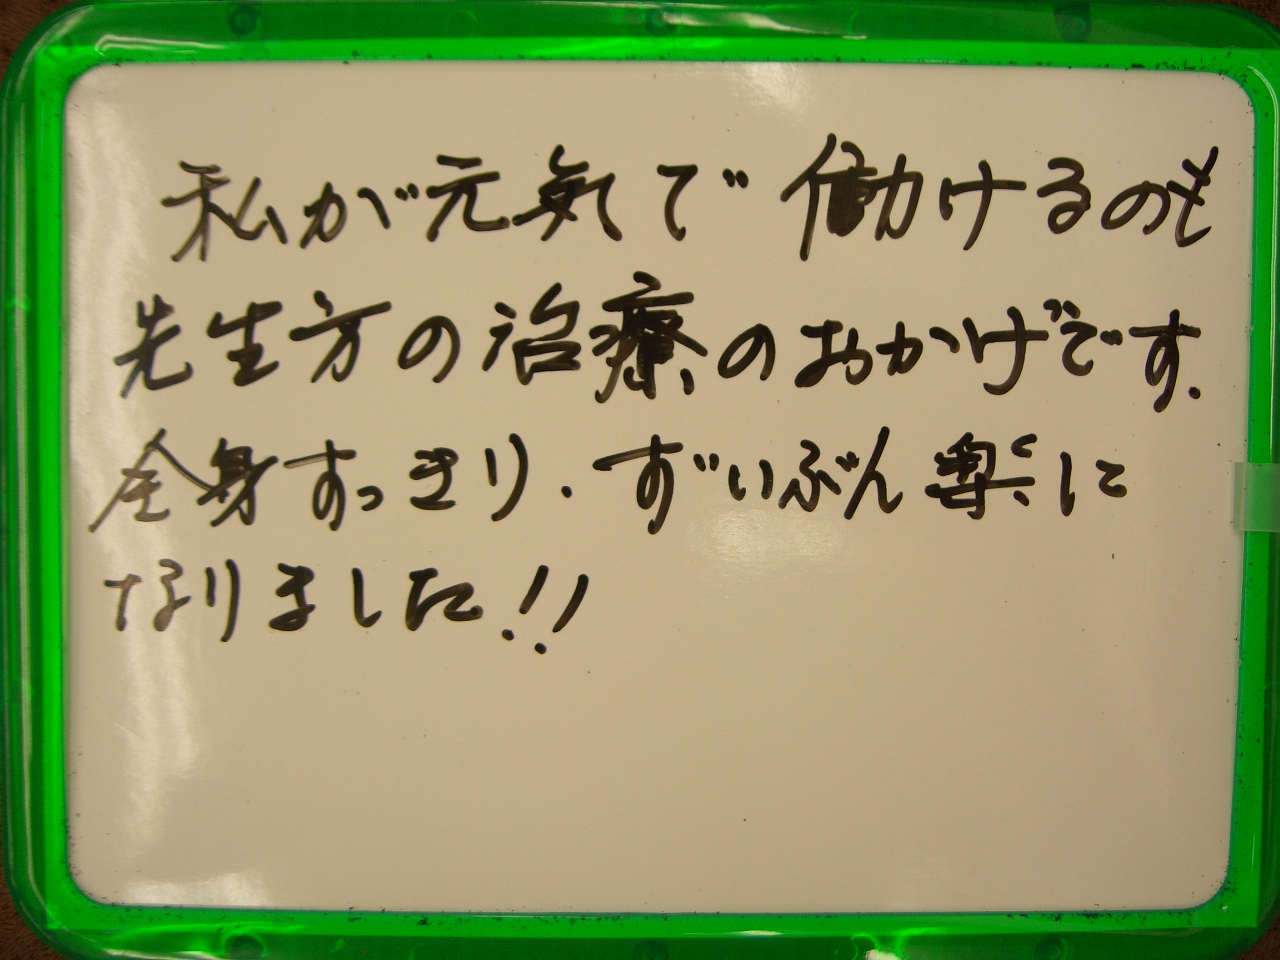 私が元気で働けるのも
先生方の治療のおかげです.
全身すっきり.ずいぶん楽に
なりました!!